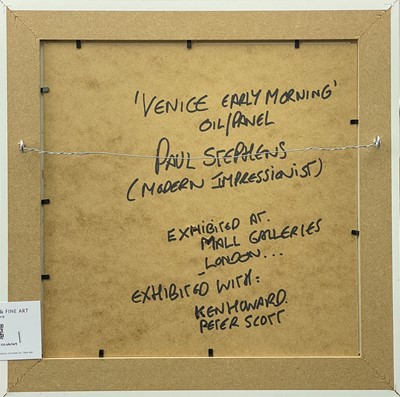 'VENICE EARLY MORNING'
OIL/PANEL
PAUL STEPHENS
(MODERN IMPRESSIONIST)
EXHIBITED AT.
MALL GALLERIES
LONDON...
EXHIBITED WITH:
KEN HOWARD.
PETER SCOTT
& FINE ART